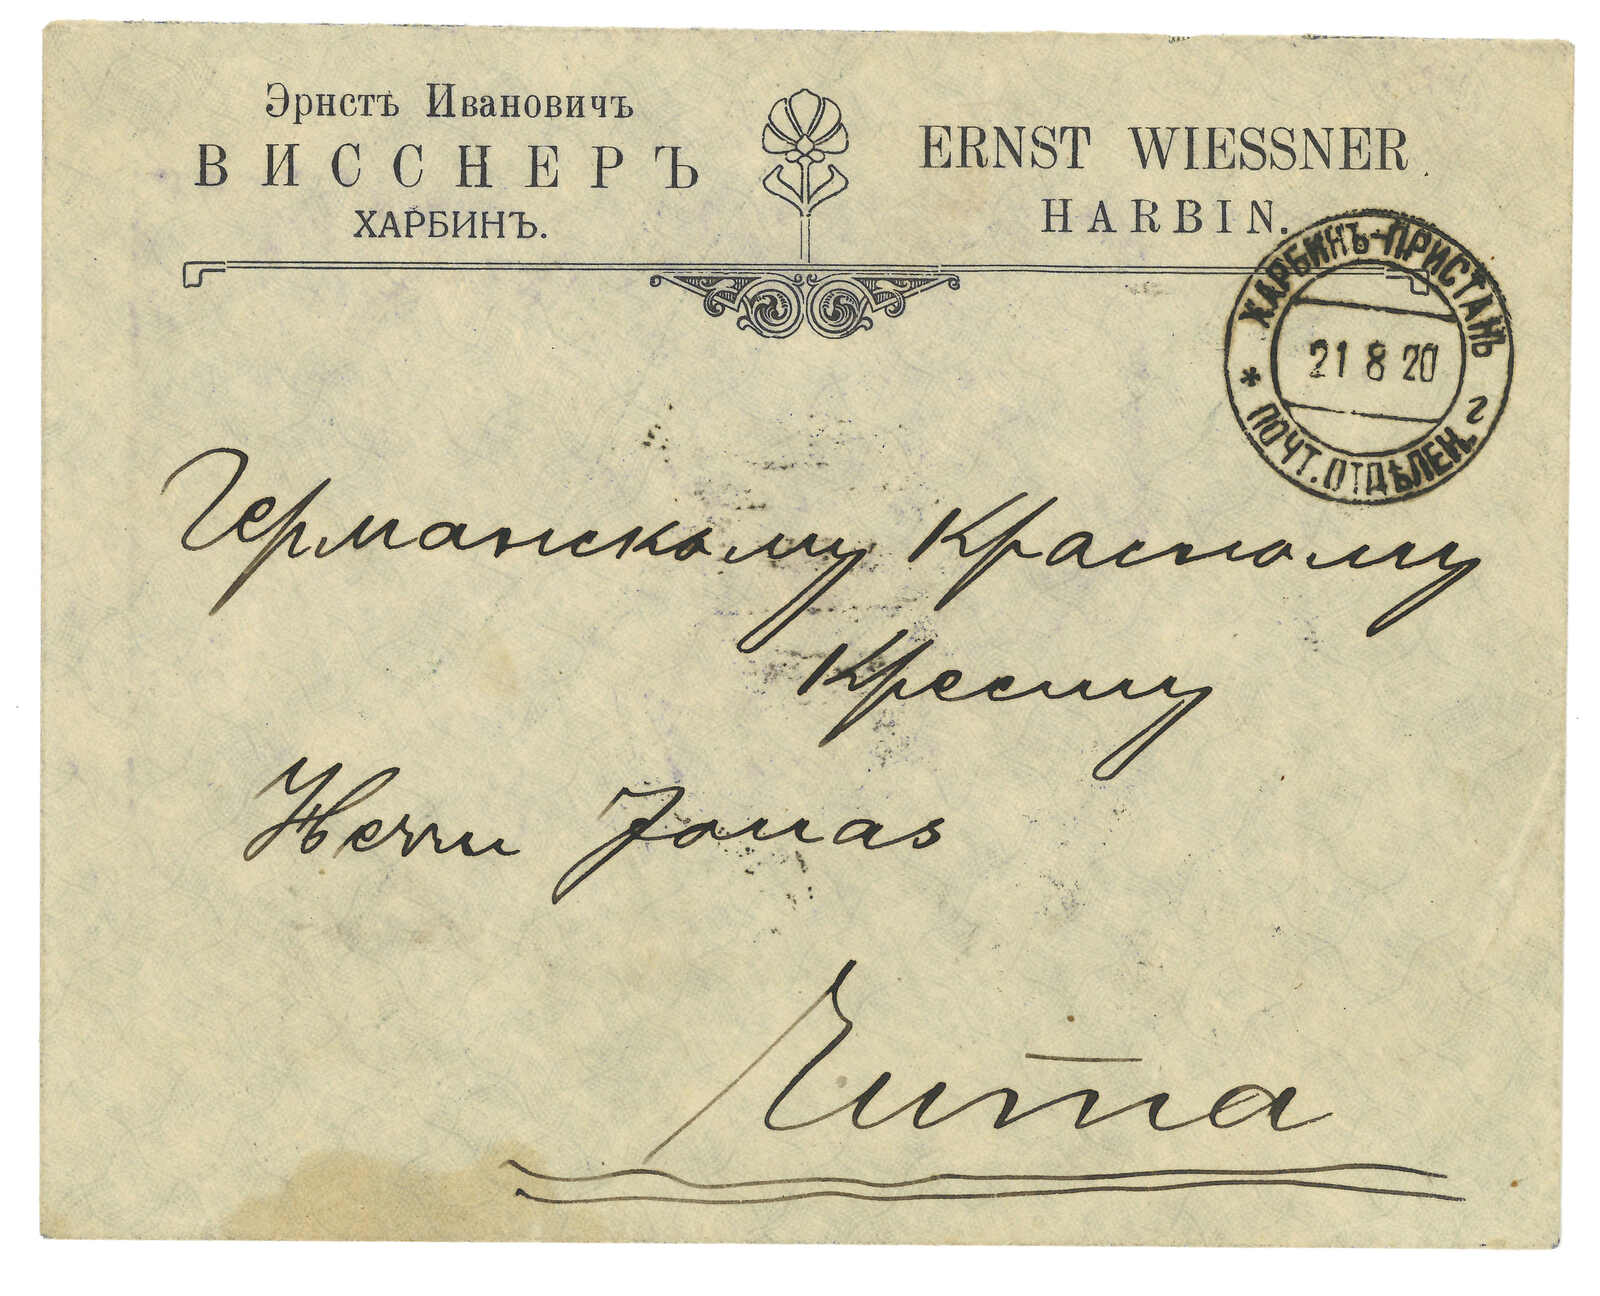 Эрнстъ Ивановичъ
ВИССНЕРЪ
ХАРБИНЪ.
ERNST WIESSNER
HARBIN.
ХАРБИНЪ-ПРИСТАНЬ
21 8 20
* ПОЧТ. ОТДѢЛЕН. г
Германскому Красному
Кресту
Herrn Jonas
Чита